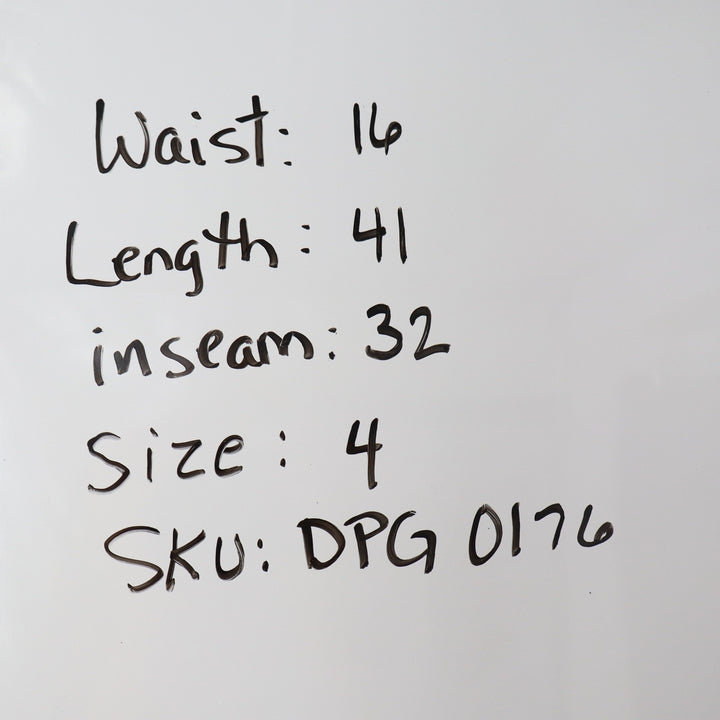 Waist: 16
Length: 41
inseam: 32
Size: 4
SKU: DPG 0176